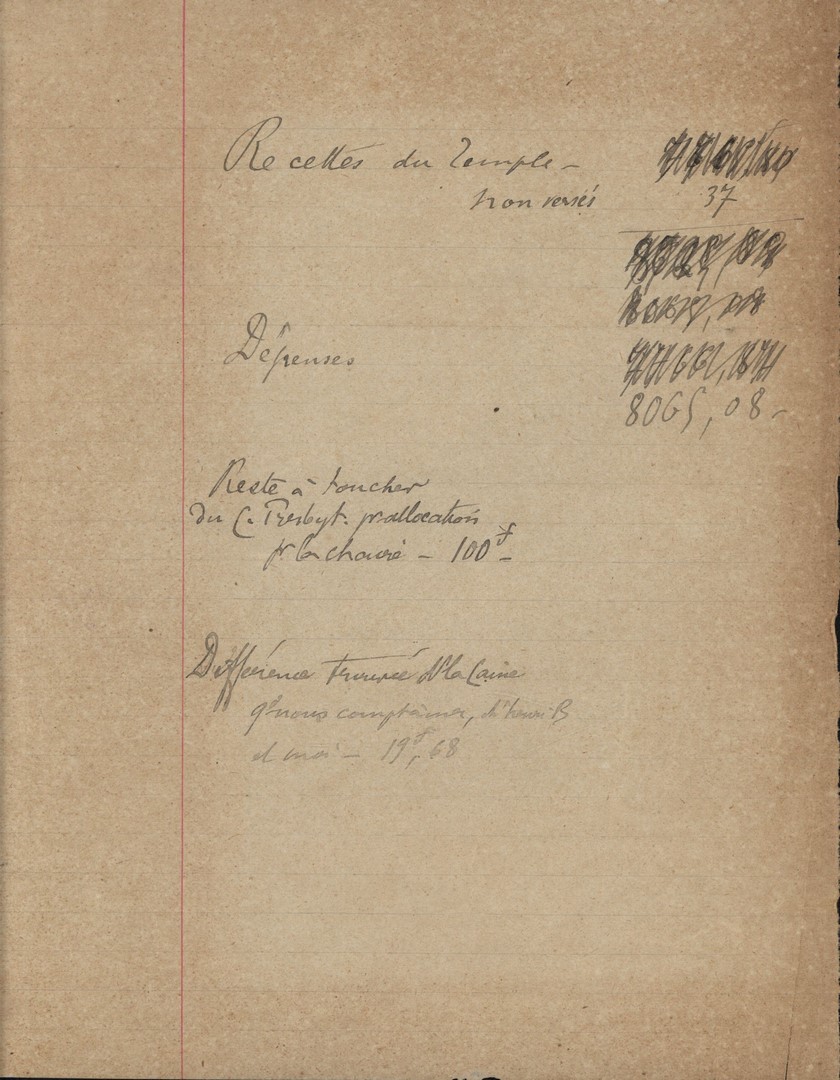 Recettes du Temple -
non versés 37
Dépenses
8065,08 -
Reste à toucher
du C. Presbyt. pr allocation
pr la chaire - 100 f -
Différence trouvée ds la Caisse
qd nous comptâmes, B
et moi - 19 f, 68